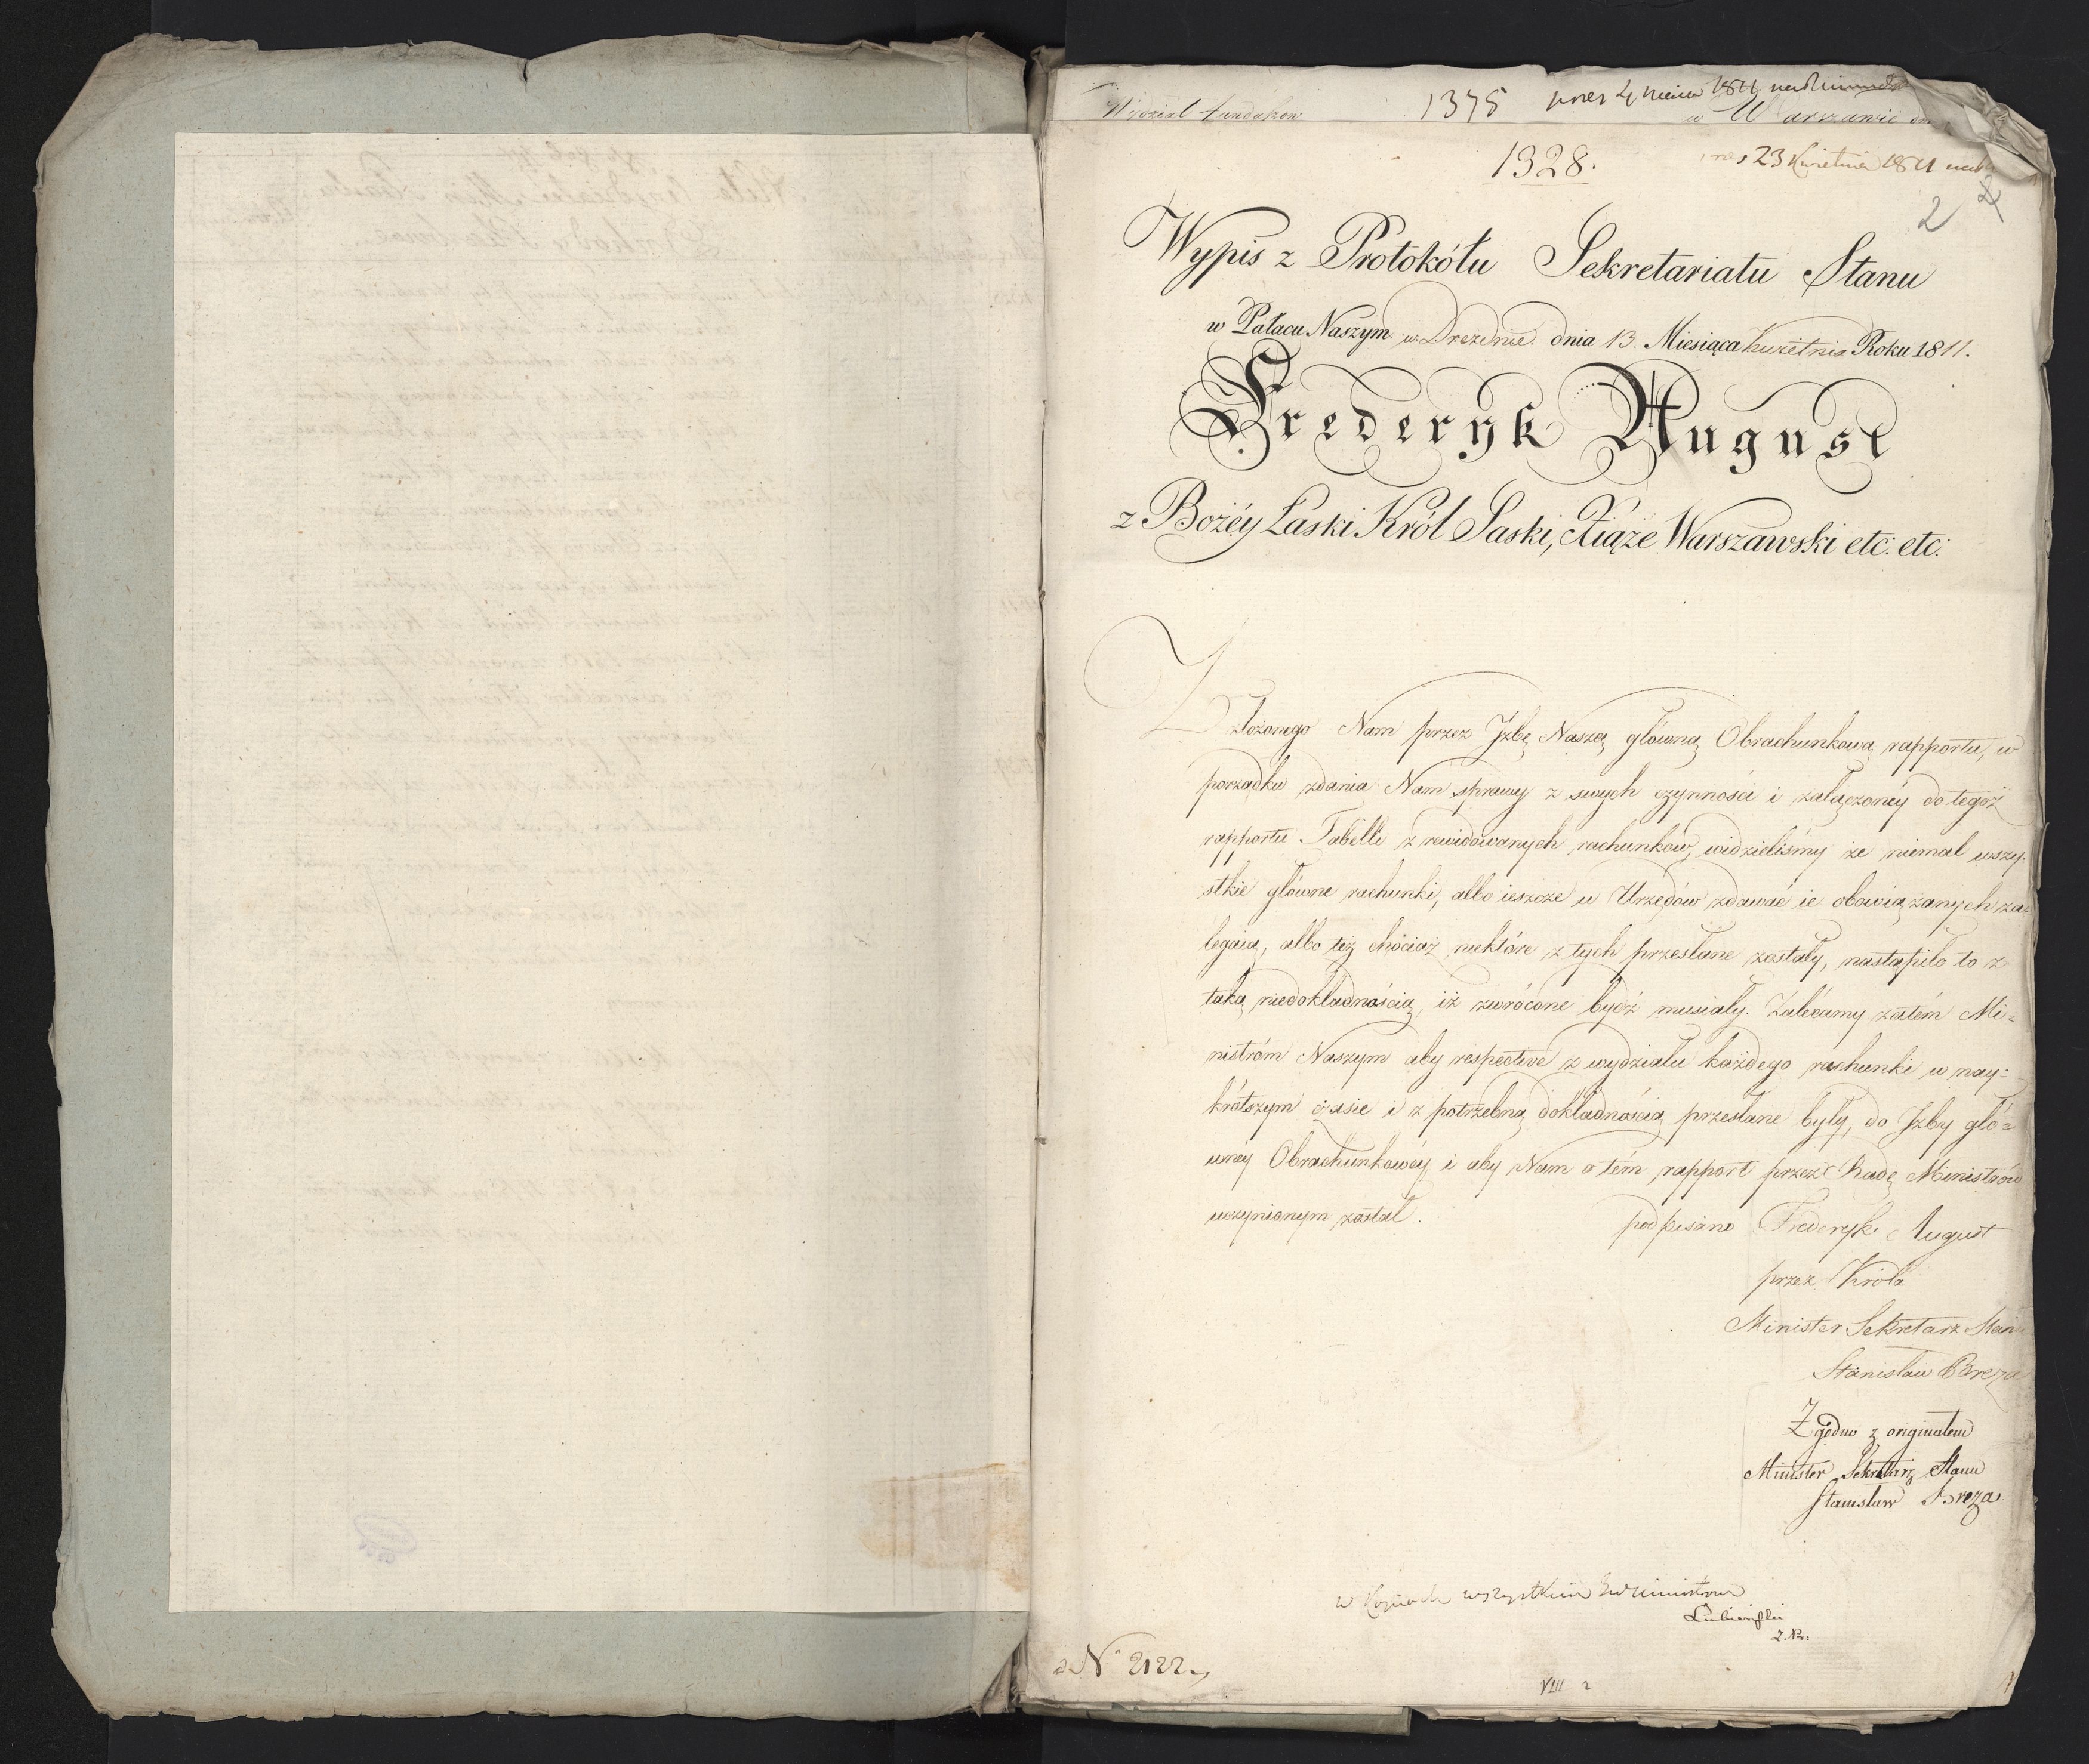 1375 4 1811
w Warszawie
1328. 23 Kwietnia 1811
2
Wypis z Protokółu Sekretariatu Stanu
w Pałacu Naszym w Dreźnie. dnia 13. Miesiąca kwietnia Roku 1811.
Frederyk August
z Bożéy Łaski Król Saski, Xiąże Warszawski etc: etc:
Z złożonego Nam przez Jzbę Naszą główną Obrachunkową rapportu, w
porządku zdania Nam sprawy z swych czynności i załączonéy do tegoż
rapportu Tabelli z rewidowanych rachunków, widzieliśmy że niemal wszy-
stkie główne rachunki, albo ieszcze u Urzędów zdawać ie obowiązanych za-
legaią, albo też chociaż niektóre z tych przesłane zostały, nastąpiło to z
taką niedokładnością, iż zwrócone bydź musiały. Zalécamy zatém Mi=
nistróm Naszym aby respective z wydziału każdego rachunki w nay=
krótszym czasie i z potrzebną dokładnością przesłane były, do Jzby głó=
wnéy Obrachunkowéy i aby Nam o tém rapport przez Radę Ministrów
uczynionym został.
podpisano Frederyk August
przez Króla
Minister Sekretarz Stanu
Stanisław Breza
Zgodno z originałem
Minister Sekretarz Stanu
Stanisław Breza
w wszystkim
Lubieński
ad N 2122.
VIII 2